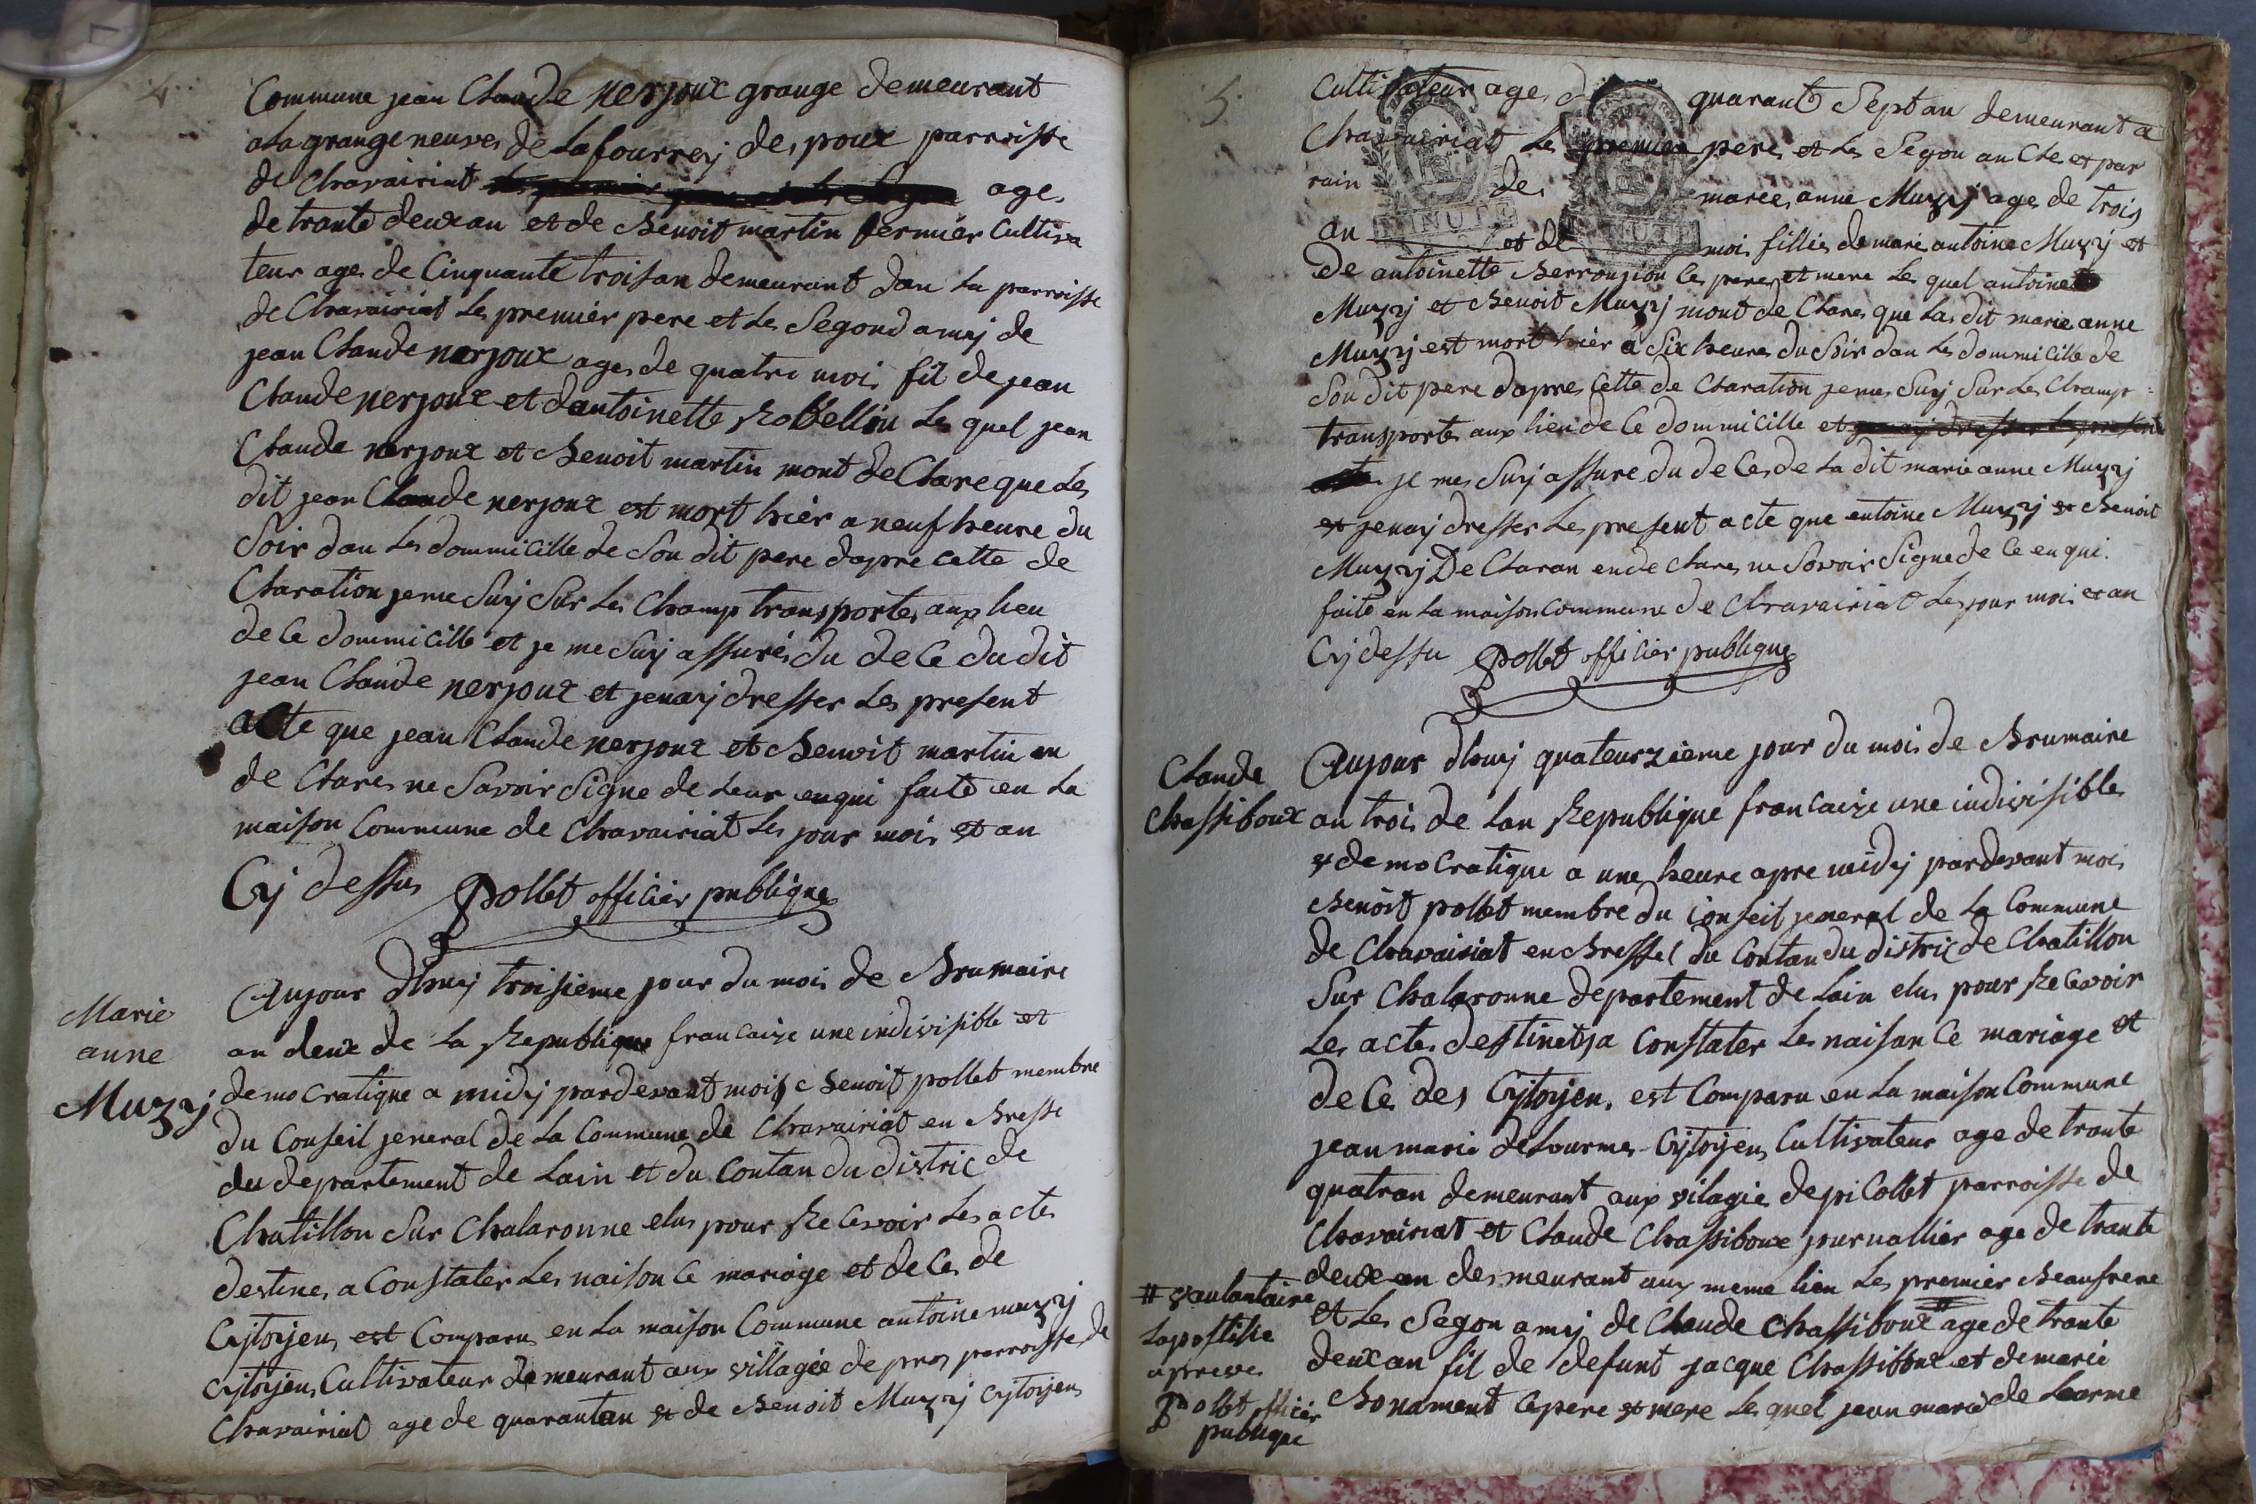 4
Commune jean Claude nerjoux grange demeurant
a la grange neuve de la fourrey de poux parroisse
de Chavairiat age
de trante deux an et de Benoit martin fermier Cultiva
teur age de Cinquante trois an demeurant dan la parroisse
de Chavairiat le premier pere et le Segond amij de
jean Claude nerjoux age de quatre moi fil de jean
Claude nerjoux et dantoinette Robellin le quel jean
Claude nerjoux et Benoit martin mont de Clare que le
dit jean Claude nerjoux est mort hier a neuf heure du
Soir dan le dommicille de Son dit pere dapre cette de
Claration je me Suij Sur le Champ transporte aux lieu
de Ce dommicille et je me Suij assure du de Ce du dit
jean Claude nerjoux et jenaij dresser le present
acte que jean Claude nerjoux et Benoit martin on
de Clare ne Savoir Signe de leur enqui faite en la
maison Commune de Chavairiat le jour moi et an
Cij dessus Pollet officier publique
Marie
anne
Muzzij
Aujour dhuij troisieme jour du moi de Brumaire
an deux de la Republique francaize une indivisible et
democratique a midij pardevant moi Benoit pollet membre
du Conseil jeneral de la Commune de Chavairiat en Bresse
du departement de Lain et du Contan du distric de
Chatillon Sur Chalaronne elu pour Recevoir les acte
destine a Constater les naison Ce mariage et de Ce de
Cijtoijen est Comparu en la maison Commune antoine muzzij
Cijtoijen Cultivateur demeurant aux villagee de pros parroisse de
Chavairiat age de quarantan et de Benoit Muzzij Cijtoijen
5
Cultivateur age d quarante Sept an demeurant a
Chavairiat le premier pere et le Segon an Cle et par
rain de marie anne Muzzij age de trois
an et de moi fillie de marie antoine Muzzij et
de antoinette Berroujion Ce pere et mere le quel antoine
Muzzij et Benoit Muzzij mont de Clare que la dit marie anne
Muzzij est mort hier a Six heure du Soir dan le dommicille de
Son dit pere dapres Cette de Claration je me Suij Sur le Champ
transporte aux lieu de Ce dommicille et jenaij dresser le present
acte je me Suij assure du de Ces de la dit marie anne Muzzij
et jenaij dresser le present acte que antoine Muzzij et Benoit
Muzzij De Claran en de Clare ne Savoir Signe de Ce enqui
faite en la maison Commune de Chavairiat le jour moi et an
Cij dessu Pollet officier publique
Claude
Chassiboux
Aujour dhuij quateurzieme jour du moi de Brumaire
an troi de lan Republique francaize une indivisible
et democratique a une heure apre midij pardevant moi
Benoit pollet membre du Conseil jeneral de la Commune
de Chavairiat en Bresse du Contan du distric de Chatillon
Sur Chalaronne departement de Lain elu pour Recevoir
les acte destinet a Constater les naisan Ce mariage et
de Ce des Cijtoijen est Comparu en la maison Commune
jean marie delourme Cijtoijen Cultivateur age de trante
quatran demeurant aux vilagie de pi Collet parroisse de
Chavairiat et Claude Chassiboux journallier age de trante
deux an demeurant aux meme lieu le premier Beaufrere
et le Segon amij de Claude Chassiboux # age de trante
deux an fil de defunt jacque Chassiboux et de marie
Bonament Ce pere et mere le quel jean marie de Lorme
# vaulantaire
lapostille
aprevé
Pollet officier
publique